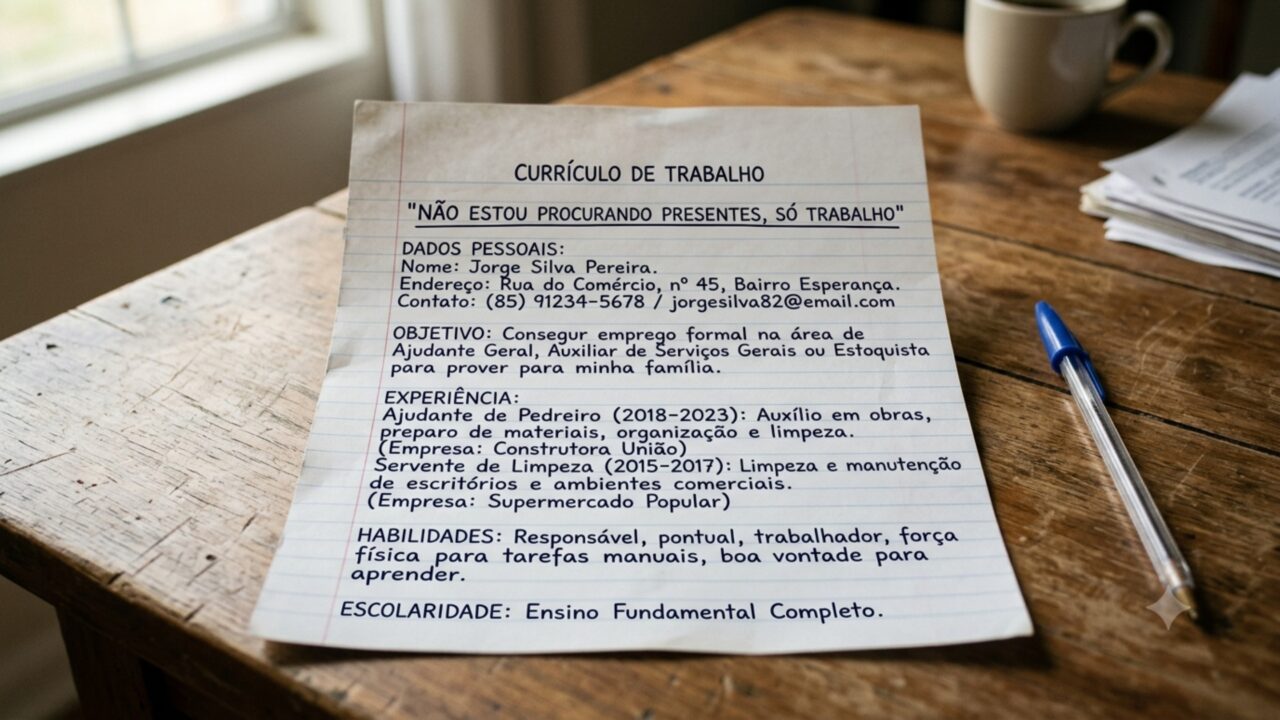 CURRÍCULO DE TRABALHO
"NÃO ESTOU PROCURANDO PRESENTES, SÓ TRABALHO"
DADOS PESSOAIS:
Nome: Jorge Silva Pereira.
Endereço: Rua do Comércio, nº 45, Bairro Esperança.
Contato: (85) 91234-5678 / jorgesilva82@email.com
OBJETIVO: Consegur emprego formal na área de
Ajudante Geral, Auxiliar de Serviços Gerais ou Estoquista
para prover para minha família.
EXPERIÊNCIA:
Ajudante de Pedreiro (2018-2023): Auxílio em obras,
preparo de materiais, organização e limpeza.
(Empresa: Construtora União)
Servente de Limpeza (2015-2017): Limpeza e manutenção
de escritórios e ambientes comerciais.
(Empresa: Supermercado Popular)
HABILIDADES: Responsável, pontual, trabalhador, força
física para tarefas manuais, boa vontade para
aprender.
ESCOLARIDADE: Ensino Fundamental Completo.